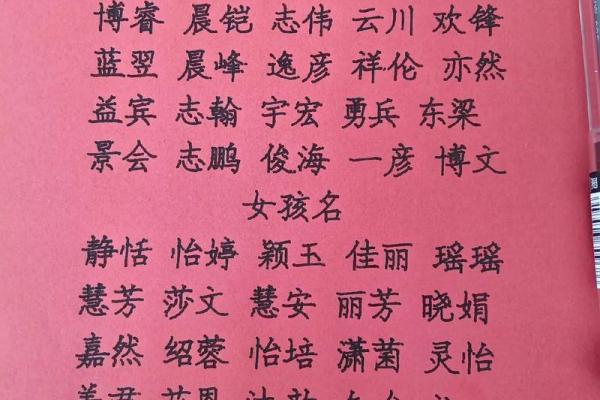 博睿 晨铠 志伟 云川 欢锋
蓝翌 晨峰 逸彦 祥伦 亦然
益宾 志翰 宇宏 勇兵 东梁
景会 志鹏 俊海 一彦 博文
女孩名
静恬 怡婷 颖玉 佳丽 瑶瑶
慧芳 莎文 慧安 丽芳 晓娟
嘉然 绍蓉 怡培 潇菌 灵怡